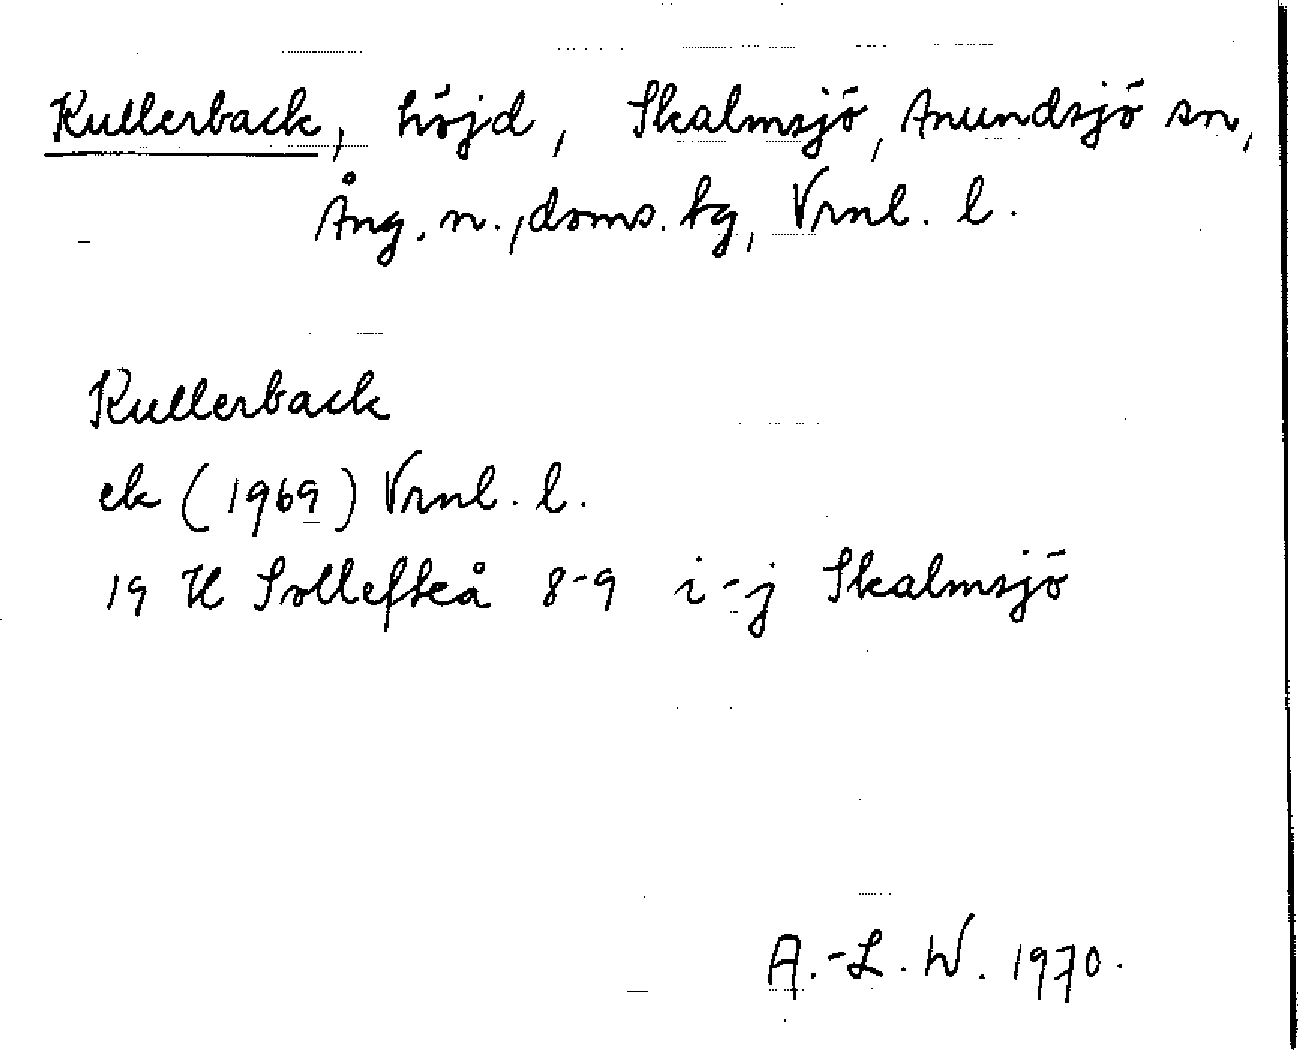 Kullerback, höjd, Skalmsjö, Anundsjö sn,
Ång. n., doms. hg, Vrnl. l.
Kullerback
ek (1969) Vrnl. l.
19 H Sollefteå 8-9 i-j Skalmsjö
A.-L. W. 1970.